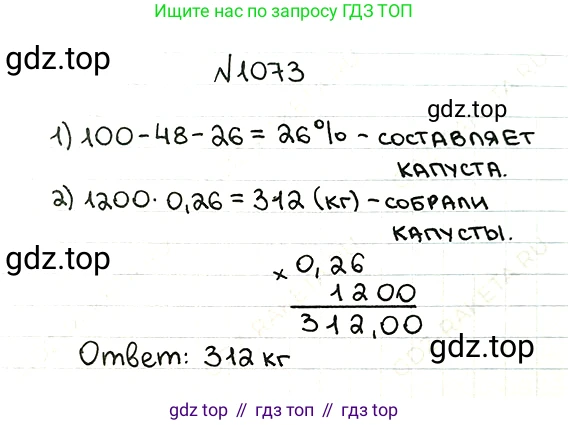 Ищите нас по запросу ГДЗ ТОП
gdz.top
№1073
gdz.top
1) 100-48-26=26% - СОСТАВЛЯЕТ
КАПУСТА.
2) 1200·0,26=312 (кг) - СОБРАЛИ
КАПУСТЫ.
gdz.top
× 0,26
1200
312,00
gdz.top
Ответ: 312 кг
gdz.top // гдз топ // gdz.top